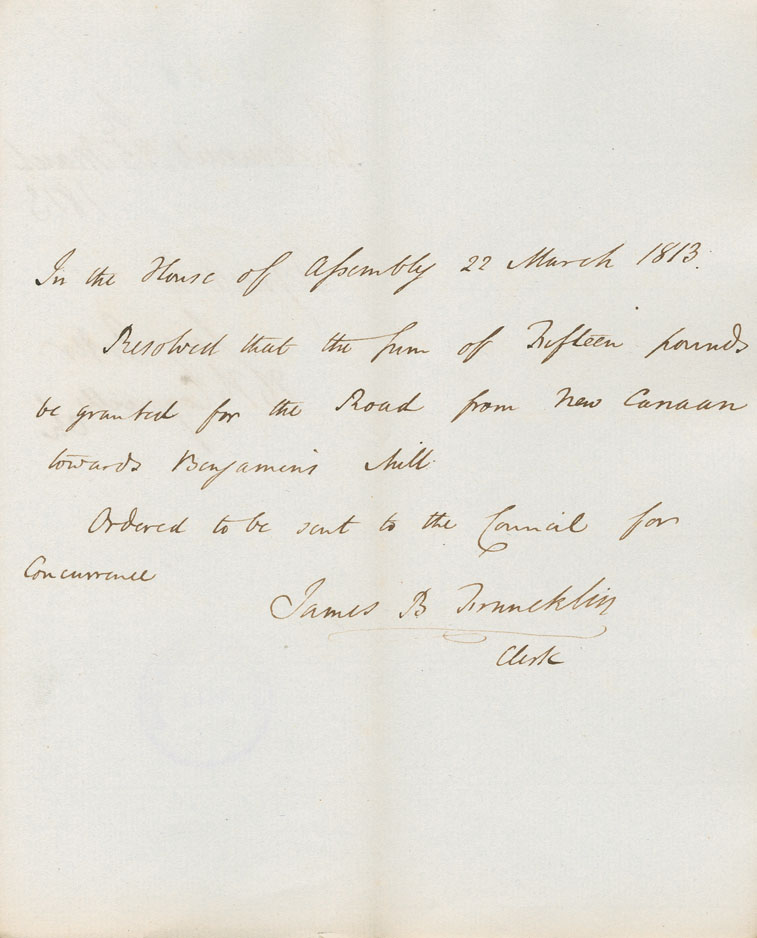 In the House of Assembly 22 March 1813.
Resolved that the sum of Fifteen pounds
be granted for the Road from New Canaan
towards Benjamin's Mill
Ordered to be sent to the Council for
Concurrence
James B Francklin
Clerk